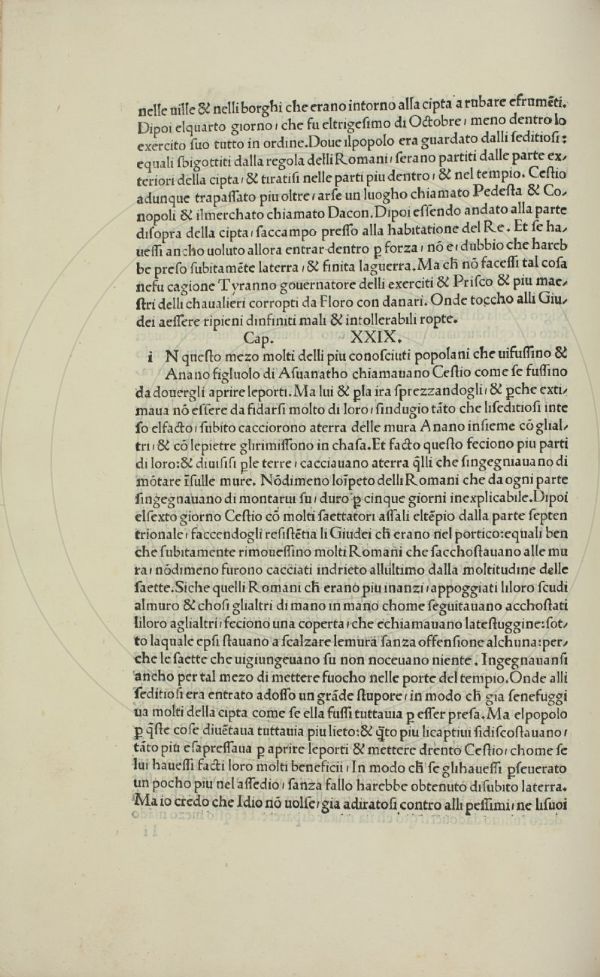 nelle uille & nelli borghi che erano intorno alla cipta a rubare efrumēti.
Dipoi elquarto giorno/ che fu eltrigeſimo di Octobre/ meno dentro lo
exercito ſuo tutto in ordine. Doue ilpopolo era guardato dalli ſeditioſi:
equali ſbigottiti dalla regola delli Romani/ ſerano partiti dalle parte ex/
teriori della cipta/ & tiratiſi nelle parti piu dentro/ & nel tempio. Ceſtio
adunque trapaſſato piu oltre/ arſe un luogho chiamato Pedeſta & Co/
nopoli & ilmerchato chiamato Dacon. Dipoi eſſendo andato alla parte
diſopra della cipta/ ſaccampo preſſo alla habitatione del Re. Et ſe ha/
ueſſi ancho uoluto allora entrar dentro ꝑ forza/ nō e/ dubbio che hareb
be preſo ſubitamēte laterra/ & finita laguerra. Ma ch̄ nō faceſſi tal coſa
neſu cagione Tyranno gouernatore delli exerciti & Priſco & piu mae/
ſtri delli chaualieri corropti da Floro con danari. Onde toccho alli Giu/
dei aeſſere ripieni dinfiniti mali & intollerabili ropte.
Cap. XXIX.
i N queſto mezo molti delli piu conoſciuti popolani che uifuſſino &
Anano figluolo di Aſuanatho chiamauano Ceſtio come ſe fuſſino
da douergli aprire leporti. Ma lui & ꝑla ira ſprezzandogli/ & ꝑche exti/
maua nō eſſere da fidarſi molto di loro/ ſindugio tāto che liſeditioſi inte
ſo elfacto/ ſubito cacciorono aterra delle mura Anano inſieme cō glial/
tri/ & cō lepietre glirimiſſono in chaſa. Et facto queſto feciono piu parti
di loro: & diuiſiſi ꝑle terre/ cacciauano aterra q̄lli che ſingegniauano di
mōtare īſulle mure. Nōdimeno loīpeto delli Romani che da ogni parte
ſingegnauano di montarui ſu/ duro ꝑ cinque giorni inexplicabile. Dipoi
elſexto giorno Ceſtio cō molti ſaettatori aſſali eltēpio dalla parte ſepten
trionale/ faccendogli reſiſtētia li Giudei ch̄ erano nel portico: equali ben
che ſubitamente rimoueſſino molti Romani che ſacchoſtauano alle mu
ra/ nōdimeno furono cacciati indrieto allultimo dalla moltitudine delle
ſaette. Siche quelli Romani ch̄ erano piu inanzi/ appoggiati liloro ſcudi
almuro & choſi glialtri di mano in mano chome ſeguitauano acchoſtati
liloro aglialtri/ feciono una coperta/ che echiamauano lateſtuggine: ſot/
to laquale epſi ſtauano a ſcalzare lemura ſanza offenſione alchuna: per/
che le ſaette che uigiungeuano ſu non noceuano niente. Ingegnauanſi
ancho per tal mezo di mettere fuocho nelle porte del tempio. Onde alli
ſeditioſi era entrato adoſſo un grāde ſtupore/ in modo ch̄ gia ſenefuggi
ua molti della cipta come ſe ella fuſſi tuttauia ꝑ eſſer preſa. Ma elpopolo
ꝑ q̄ſte coſe diuētaua tuttauia piu lieto: & q̄to piu licaptiui ſidiſcoſtauano/
tāto piu eſapreſſaua ꝑ aprire leporti & mettere drento Ceſtio/ chome ſe
lui haueſſi facti loro molti beneficii/ In modo ch̄ ſe glihaueſſi ꝑſeuerato
un pocho piu nel aſſedio/ ſanza fallo harebbe obtenuto diſubito laterra.
Ma io credo che Idio nō uolſe/ gia adiratoſi contro alli peſſimi/ ne liſuoi